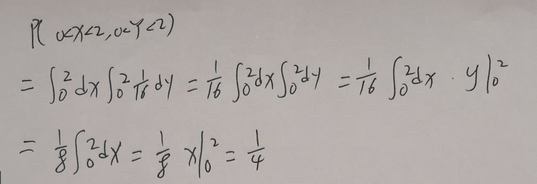 P( 0<X<2, 0<Y<2)
= ∫₀² dx ∫₀² 1/16 dy = 1/16 ∫₀² dx ∫₀² dy = 1/16 ∫₀² dx · y|₀²
= 1/8 ∫₀² dx = 1/8 x|₀² = 1/4